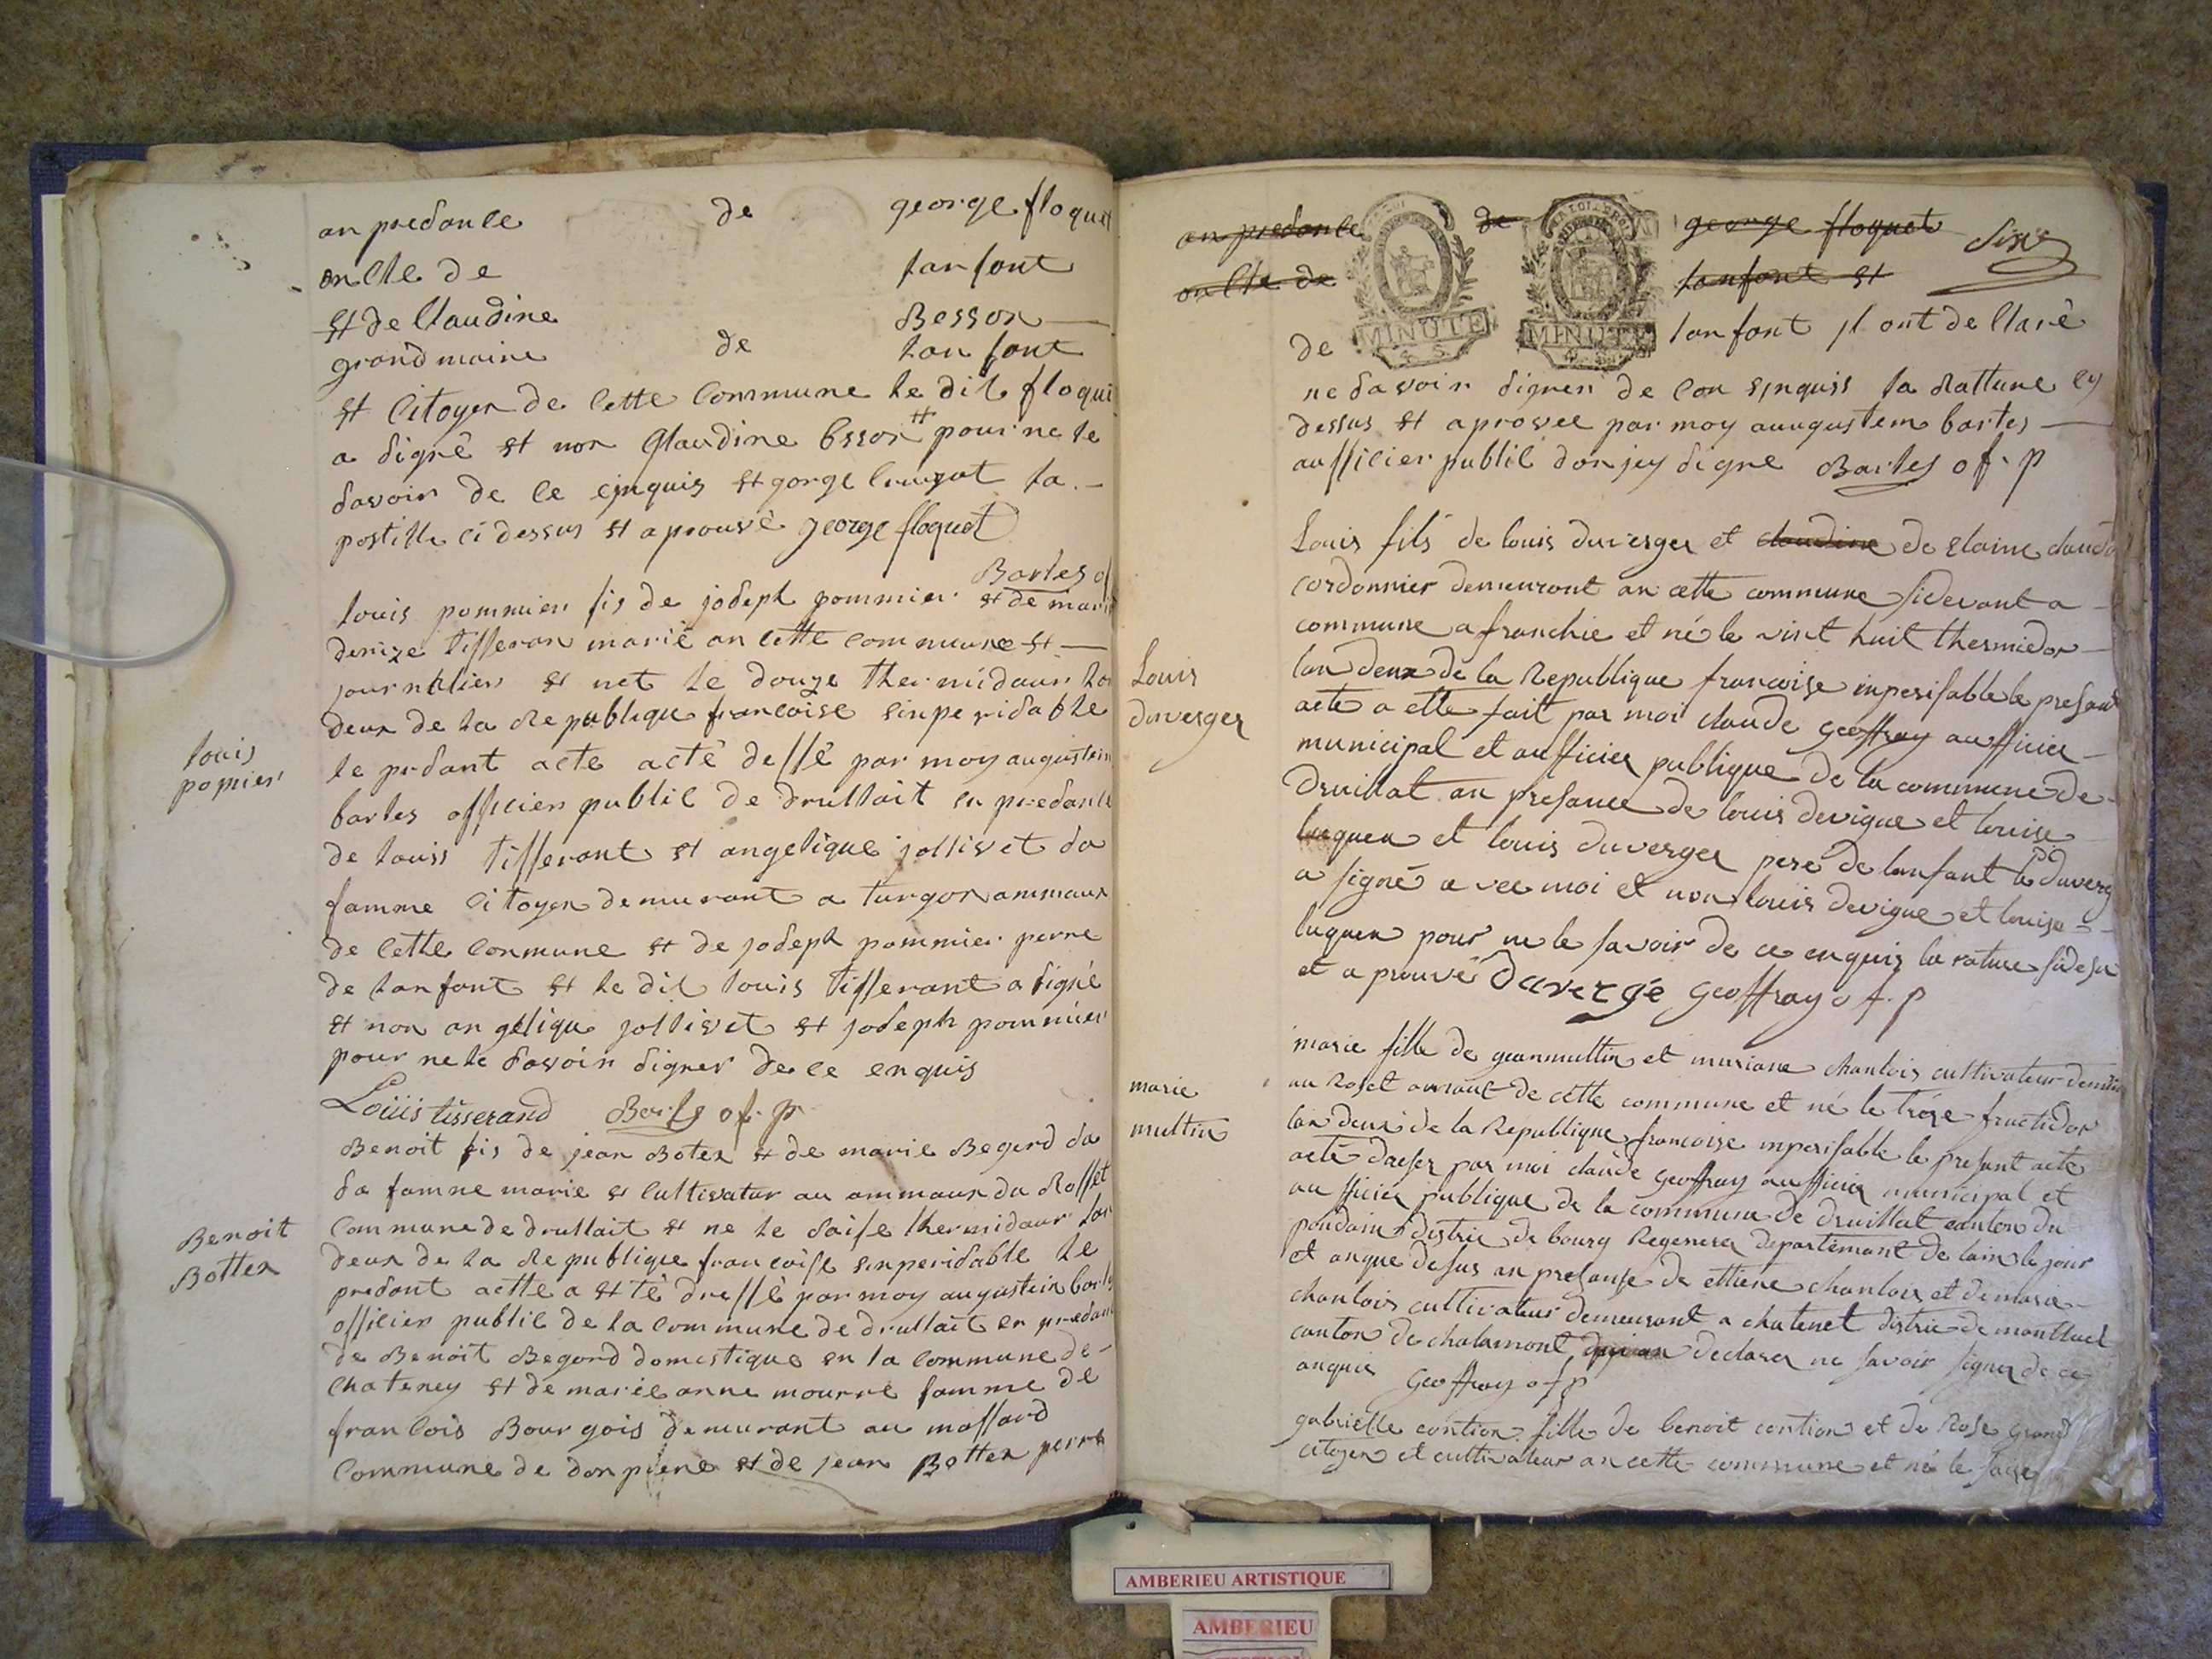 an predance de george floquet
oncle de lanfont
et de claudine Besson
grand maire de lanfont
et Citoyen de cette Commune le dit floqui
a signé et non Glaudine besson # pour ne le
savoir de ce enquis et gorge la
postille ci dessus et aprouvé george floquet
Barles of
louis pommier fis de joseph pommier et de marie
denize tisseran marié an cette commune et
journalier et net le douze thermidaur lon
deux de la Republique francoise einperisable
le predant acte acté dessé par moy augustein
barles officier publie de drullait en predance
de louis tisserant et angelique jollivet sa
famme Citoyen demurant a turgon ammaux
de cette commune et de joseph pommier perre
de lanfont et le dit louis tisserant a signé
et non angelique jollivet et joseph pommier
pour ne le savoir signer de ce enquis
Loüis tisserand Barles of. p
louis
pomier
Benoit fis de jean Boter et de marie Begord sa
sa famne marie et Cultivatur au ammaux du Rosset
Commune de drullait et ne le saise thermidaur lon
deux de la Republique francoise einperidable le
predont actte a etté dressé par moy augustein barles
officier publie de la Commune de drullait en predance
de Benoit Begord domestique en la Commune de
Chateney et de marie anne mourre famme de
francois Bourgois demurant au massard
Commune de donpiere et de jean Botter perre
Benoit
Botter
an predance de george floquet
oncle de lanfont et
MINUTE
4. S.
MINUTE
4. S.
de lanfont il ont declaré
ne savoir signer de con enquiss la Rature cy
dessus et aprovee par moy auugustein bartes
aufficier publie donjey signe Barles of. p
Louis fils de louis duverger et claudine de claine claude
cordonnier demeuront an cette commune sidevant a
commune a franchie et né le vint huit thermidor
lan deux de la Republique francoise inperisable le presant
acte a etté fait par moi claude geoffray aufficier
municipal et aufficier publique de la commune de
Druillat an presance de louis devigne et louise
luquen et louis duverger pere de lanfant le duverg
a signé avec moi et non louis devigne et louise
luquen pour ne le savoir de ce enquis la rature sidesu
et aprouvé Duvergé geoffray of. p
Louis
duverger
marie fille de geanmultin et mariane chanlois cultivateur demeu
au Roset amaut de cette commune et né le tréze fructidor
lan deux de la Republique francoise imperisable le presant acte
acté dreser par moi claude geoffray aufficier municipal et
aufficier publique de la commune de druillat canton du
pondain distric de bourg Regenerer departemant de lain le jour
et anque desus an presanse de ettiene chanlois et de marie
chanlois cultivateur demeurant a chatenet distric de montluel
canton de chalamont declarer ne savoir signer de ce
anquis geoffray of p
marie
multin
gabrielle contion fille de benoit contion et de Rose grand
citoyen et cultivateur an cette commune et né le saise
AMBERIEU ARTISTIQUE
AMBERIEU